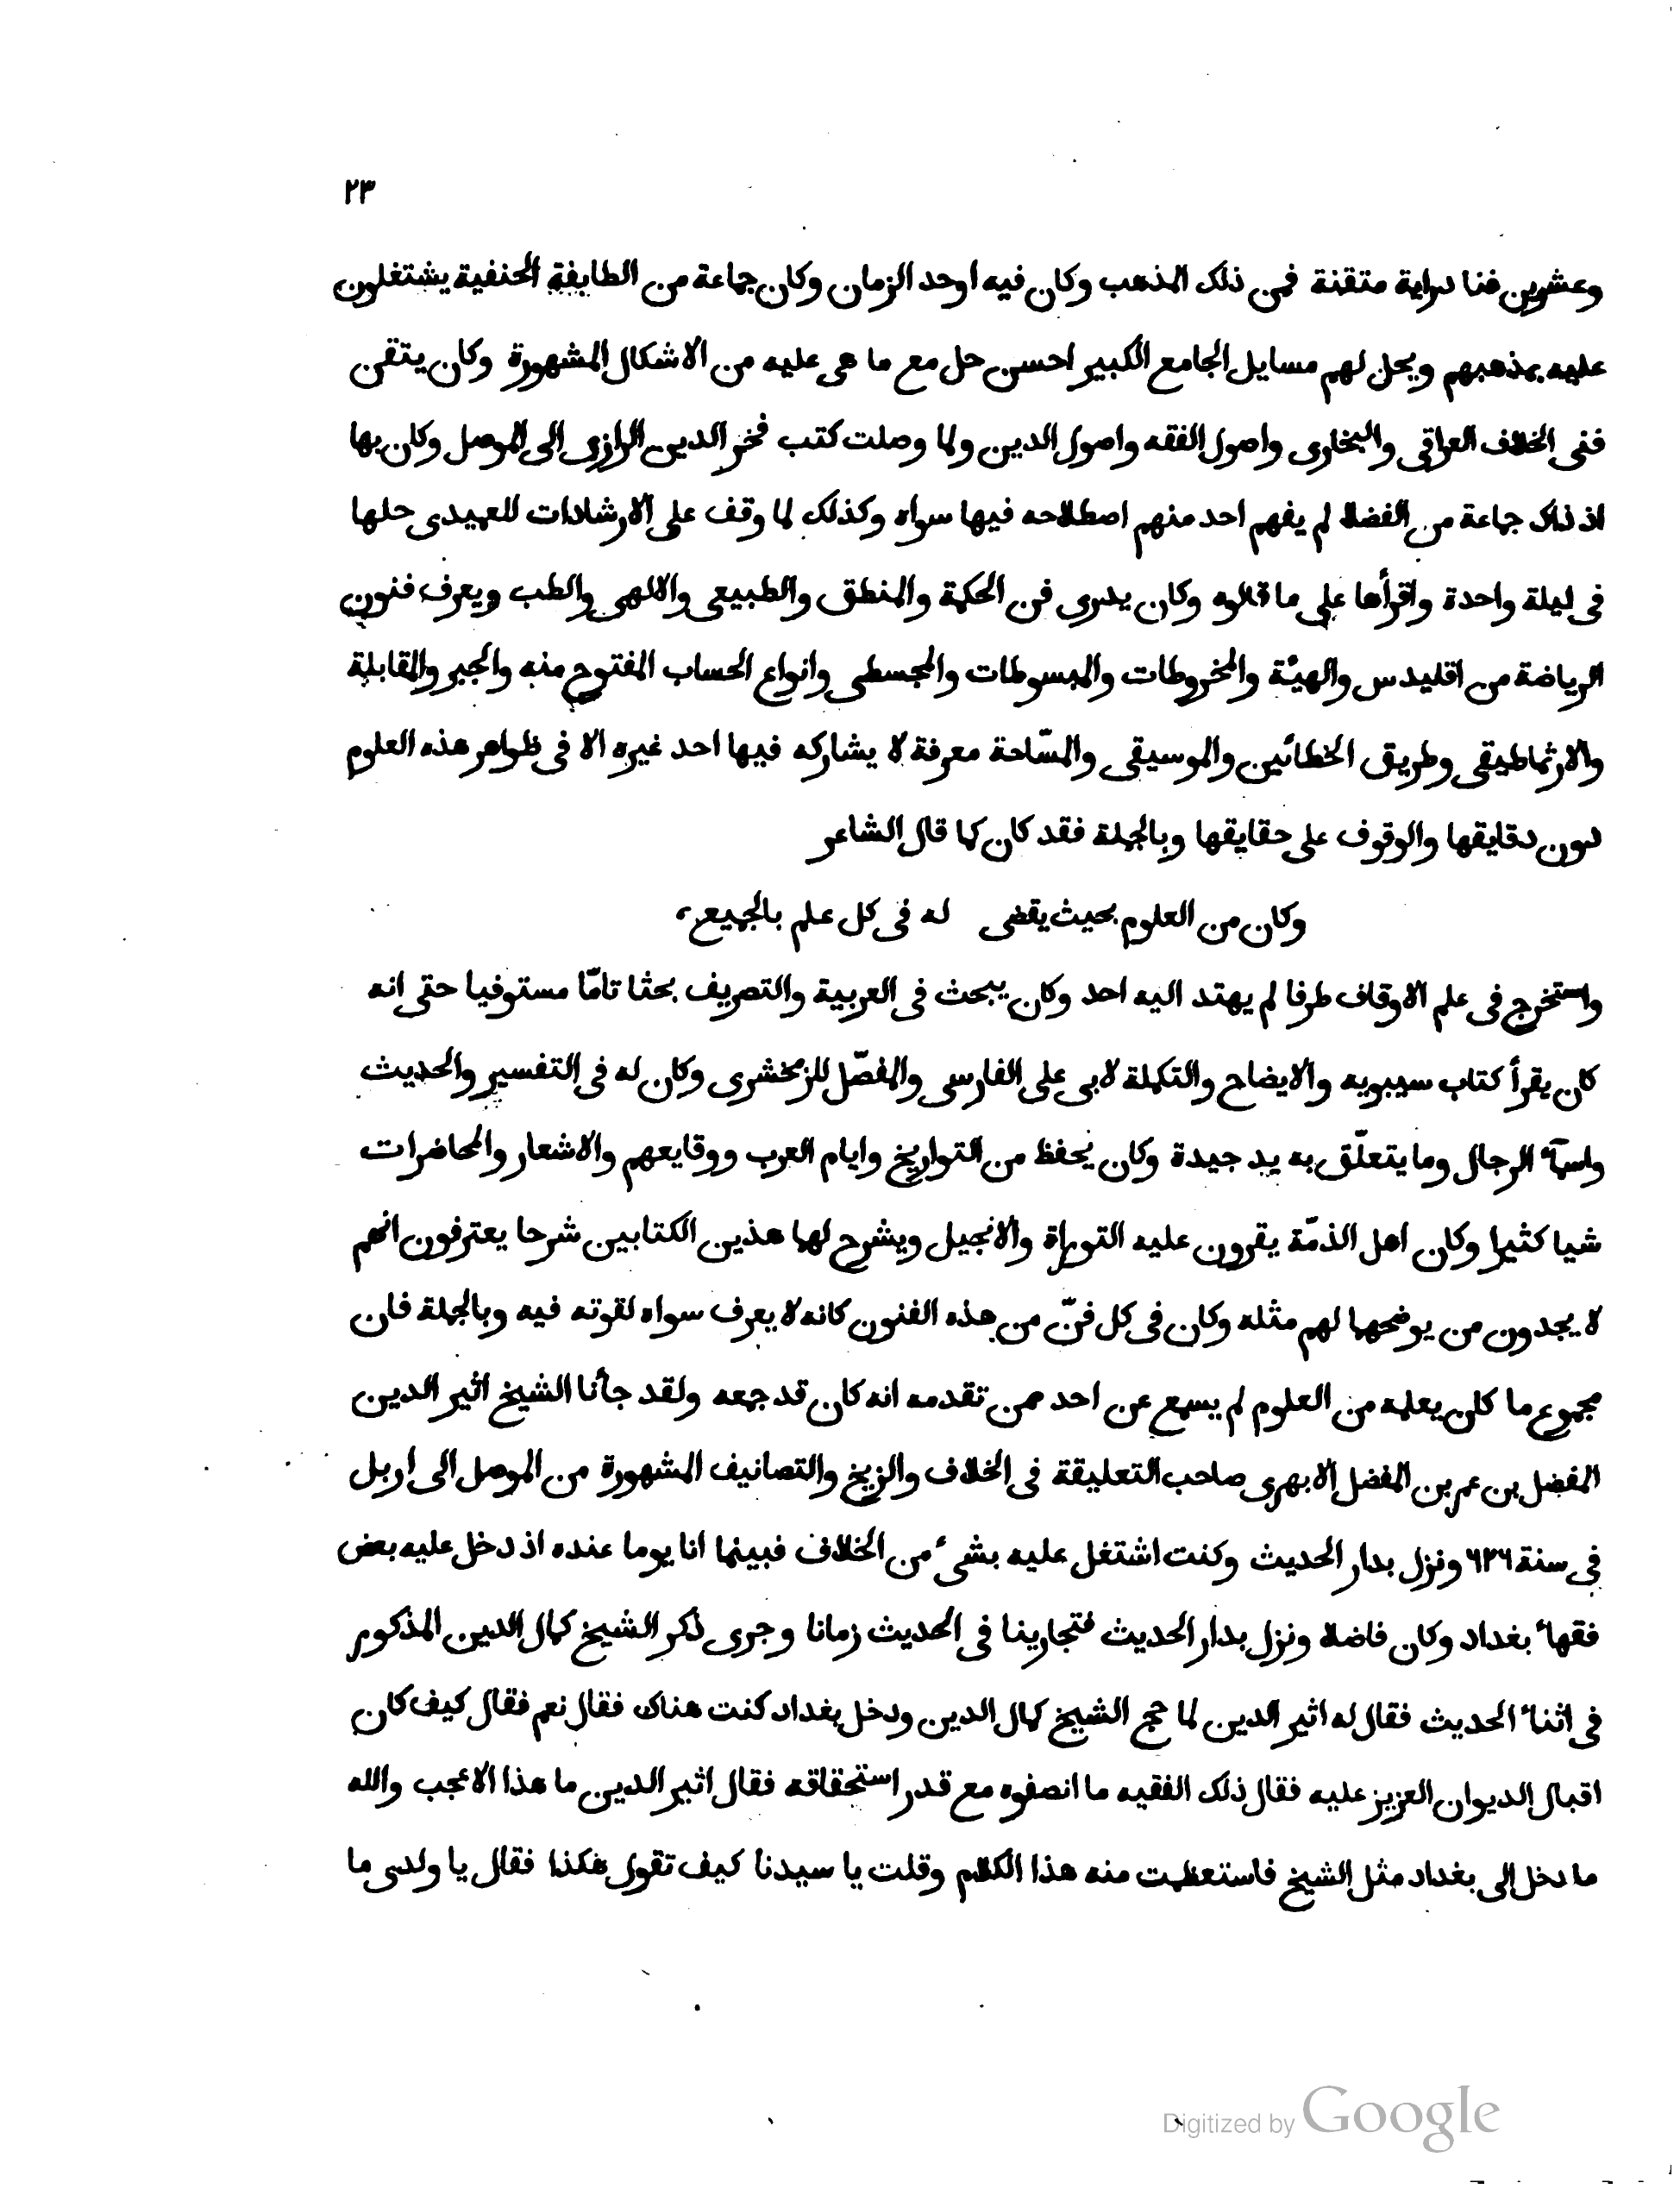 ٢٣
وعشرين فنا دراية متقنة فمن ذلك المذهب وكان فيه اوحد الزمان وكان جماعة من الطايفة الحنفية يشتغلون
عليه بمذهبهم ويحل لهم مسايل الجامع الكبير احسن حل مع ما هى عليه من الاشكال المشهورة وكان يتقن
فنى الخلاف العراقى والبخارى واصول الفقه واصول الدين ولما وصلت كتب فخر الدين الرازى الى الموصل وكان بها
اذ ذاك جماعة من الفضلا لم يفهم احد منهم اصطلاحه فيها سواه وكذلك لما وقف على الارشادات للعميدى حلها
فى ليلة واحدة واقرأها على ما قالوه وكان يدرى فن الحكمة والمنطق والطبيعى والالهى والطب ويعرف فنون
الرياضة من اقليدس والهيئة والمخروطات والمبسوطات والمجسطى وانواع الحساب المفتوح منه والجبر والمقابلة
والارثماطيقى وطريق الخطائين والموسيقى والمسّاحة معرفة لا يشاركه فيها احد غيره الا فى ظواهر هذه العلوم
دون دقايقها والوقوف على حقايقها وبالجملة فقد كان كما قال الشاعر
وكان من العلوم بحيث يقضى له فى كل علم بالجميع،
واستخرج فى علم الاوقاف طرفا لم يهتد اليه احد وكان يبحث فى العربية والتصريف بحثا تامّا مستوفيا حتى انه
كان يقرأ كتاب سيبويه والايضاح والتكملة لابى على الفارسى والمفصّل للزمخشرى وكان له فى التفسير والحديث
واسمآء الرجال وما يتعلّق به يد جيدة وكان يحفظ من التواريخ وايام العرب ووقايعهم والاشعار والمحاضرات
شيا كثيرا وكان اهل الذمّة يقرون عليه التوراة والانجيل ويشرح لهما هذين الكتابين شرحا يعترفون انهم
لا يجدون من يوضحهما لهم مثله وكان فى كل فنّ من هذه الفنون كانه لا يعرف سواه لقوته فيه وبالجملة فان
مجموع ما كان يعلمه من العلوم لم يسمع عن احد ممن تقدمه انه كان قد جمعه ولقد جأنا الشيخ اثير الدين
المفضل بن عمر بن المفضل الابهرى صاحب التعليقة فى الخلاف والزيخ والتصانيف المشهورة من الموصل الى اربل
فى سنة ٦٢٦ ونزل بدار الحديث وكنت اشتغل عليه بشىء من الخلاف فبينما انا يوما عنده اذ دخل عليه بعض
فقهاء بغداد وكان فاضلا ونزل بدار الحديث فتجارينا فى الحديث زمانا وجرى ذكر الشيخ كمال الدين المذكور
فى اثناء الحديث فقال له اثير الدين لما حج الشيخ كمال الدين ودخل بغداد كنت هناك فقال نعم فقال كيف كان
اقبال الديوان العزيز عليه فقال ذلك الفقيه ما انصفوه مع قدر استحقاقه فقال اثير الدين ما هذا الا عجب والله
ما دخل الى بغداد مثل الشيخ فاستعظمت منه هذا الكلام وقلت يا سيدنا كيف تقول هكذا فقال يا ولدى ما
Digitized by Google